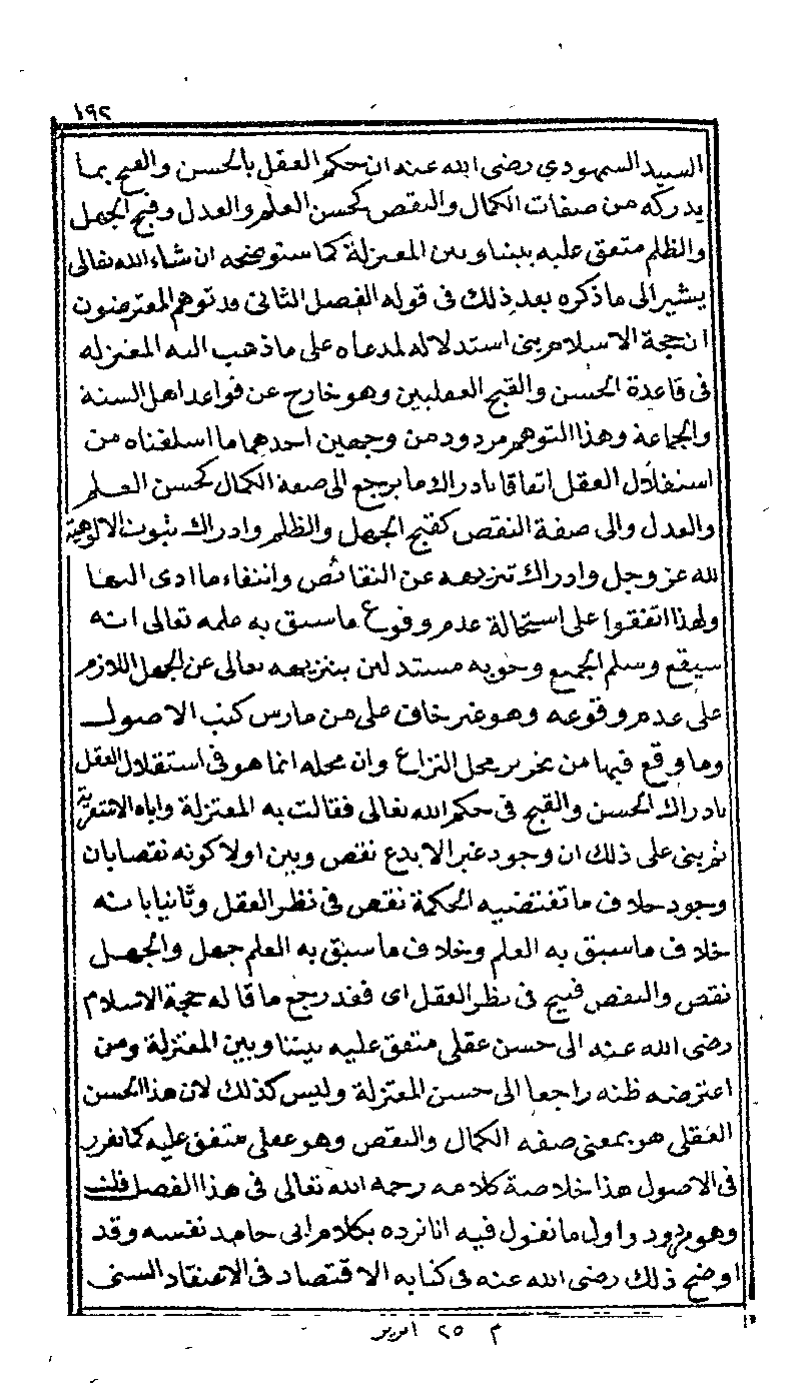 ١٩٢
السيد السمهودي رضى الله عنه ان حكم العقل بالحسن والقبح بما
يدركه من صفات الكمال والنقص كحسن العلم والعدل وقبح الجهل
والظلم متفق عليه بيننا وبين المعتزلة كما سنوضحه ان شاء الله تعالى
يشير الى ما ذكره بعد ذلك فى قوله الفصل الثانى قد توهم المعترضون
ان حجة الاسلام بنى استدلاله لمدعاه على ما ذهب اليه المعتزله
فى قاعدة الحسن والقبح العقليين وهو خارج عن قواعد اهل السنة
والجماعة وهذا التوهم مردود من وجهين احدهما ما اسلفناه من
استقلال العقل اتفاقا بادراك ما يرجع الى صفة الكمال كحسن العلم
والعدل والى صفة النقص كقبح الجهل والظلم وادراك ثبوت الالوهية
لله عز وجل وادراك تنزيهه عن النقائص وانتفاء ما ادى اليها
ولهذا اتفقوا على استحالة عدم وقوع ما سبق به علمه تعالى انه
سيقع وسلم الجميع وجوبه مستدلين بتنزيهه تعالى عن الجهل اللازم
على عدم وقوعه وهو غير خاف على من مارس كتب الاصول
وما وقع فيها من تحرير محل النزاع وان محله انما هو فى استقلال العقل
بادراك الحسن والقبح فى حكم الله تعالى فقالت به المعتزلة واباه الاشعرية
ثم بنى على ذلك ان وجود غير الابدع نقص وبين اولا كونه نقصا بان
وجود خلاف ما تقتضيه الحكمة نقص فى نظر العقل وثانيا بانه
خلاف ما سبق به العلم وخلاف ما سبق به العلم جهل والجهل
نقص والنقص قبيح فى نظر العقل اى فقد رجع ما قاله حجة الاسلام
رضى الله عنه الى حسن عقلى متفق عليه بيننا وبين المعتزلة ومن
اعترضه ظنه راجعا الى حسن المعتزلة وليس كذلك لان هذا الحسن
العقلى هو بمعنى صفه الكمال والنقص وهو عقلى متفق عليه كما تقرر
فى الاصول هذا خلاصة كلامه رحمه الله تعالى فى هذا الفصل قلت
وهو مردود واول ما نقول فيه انا نرده بكلام ابى حامد نفسه وقد
اوضح ذلك رضى الله عنه فى كتابه الاقتصاد فى الاعتقاد السنى
م ٢٥ ابريز